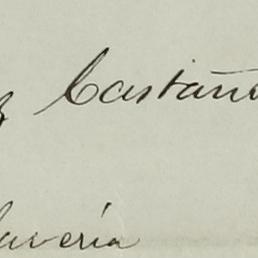 Castañ
lavería